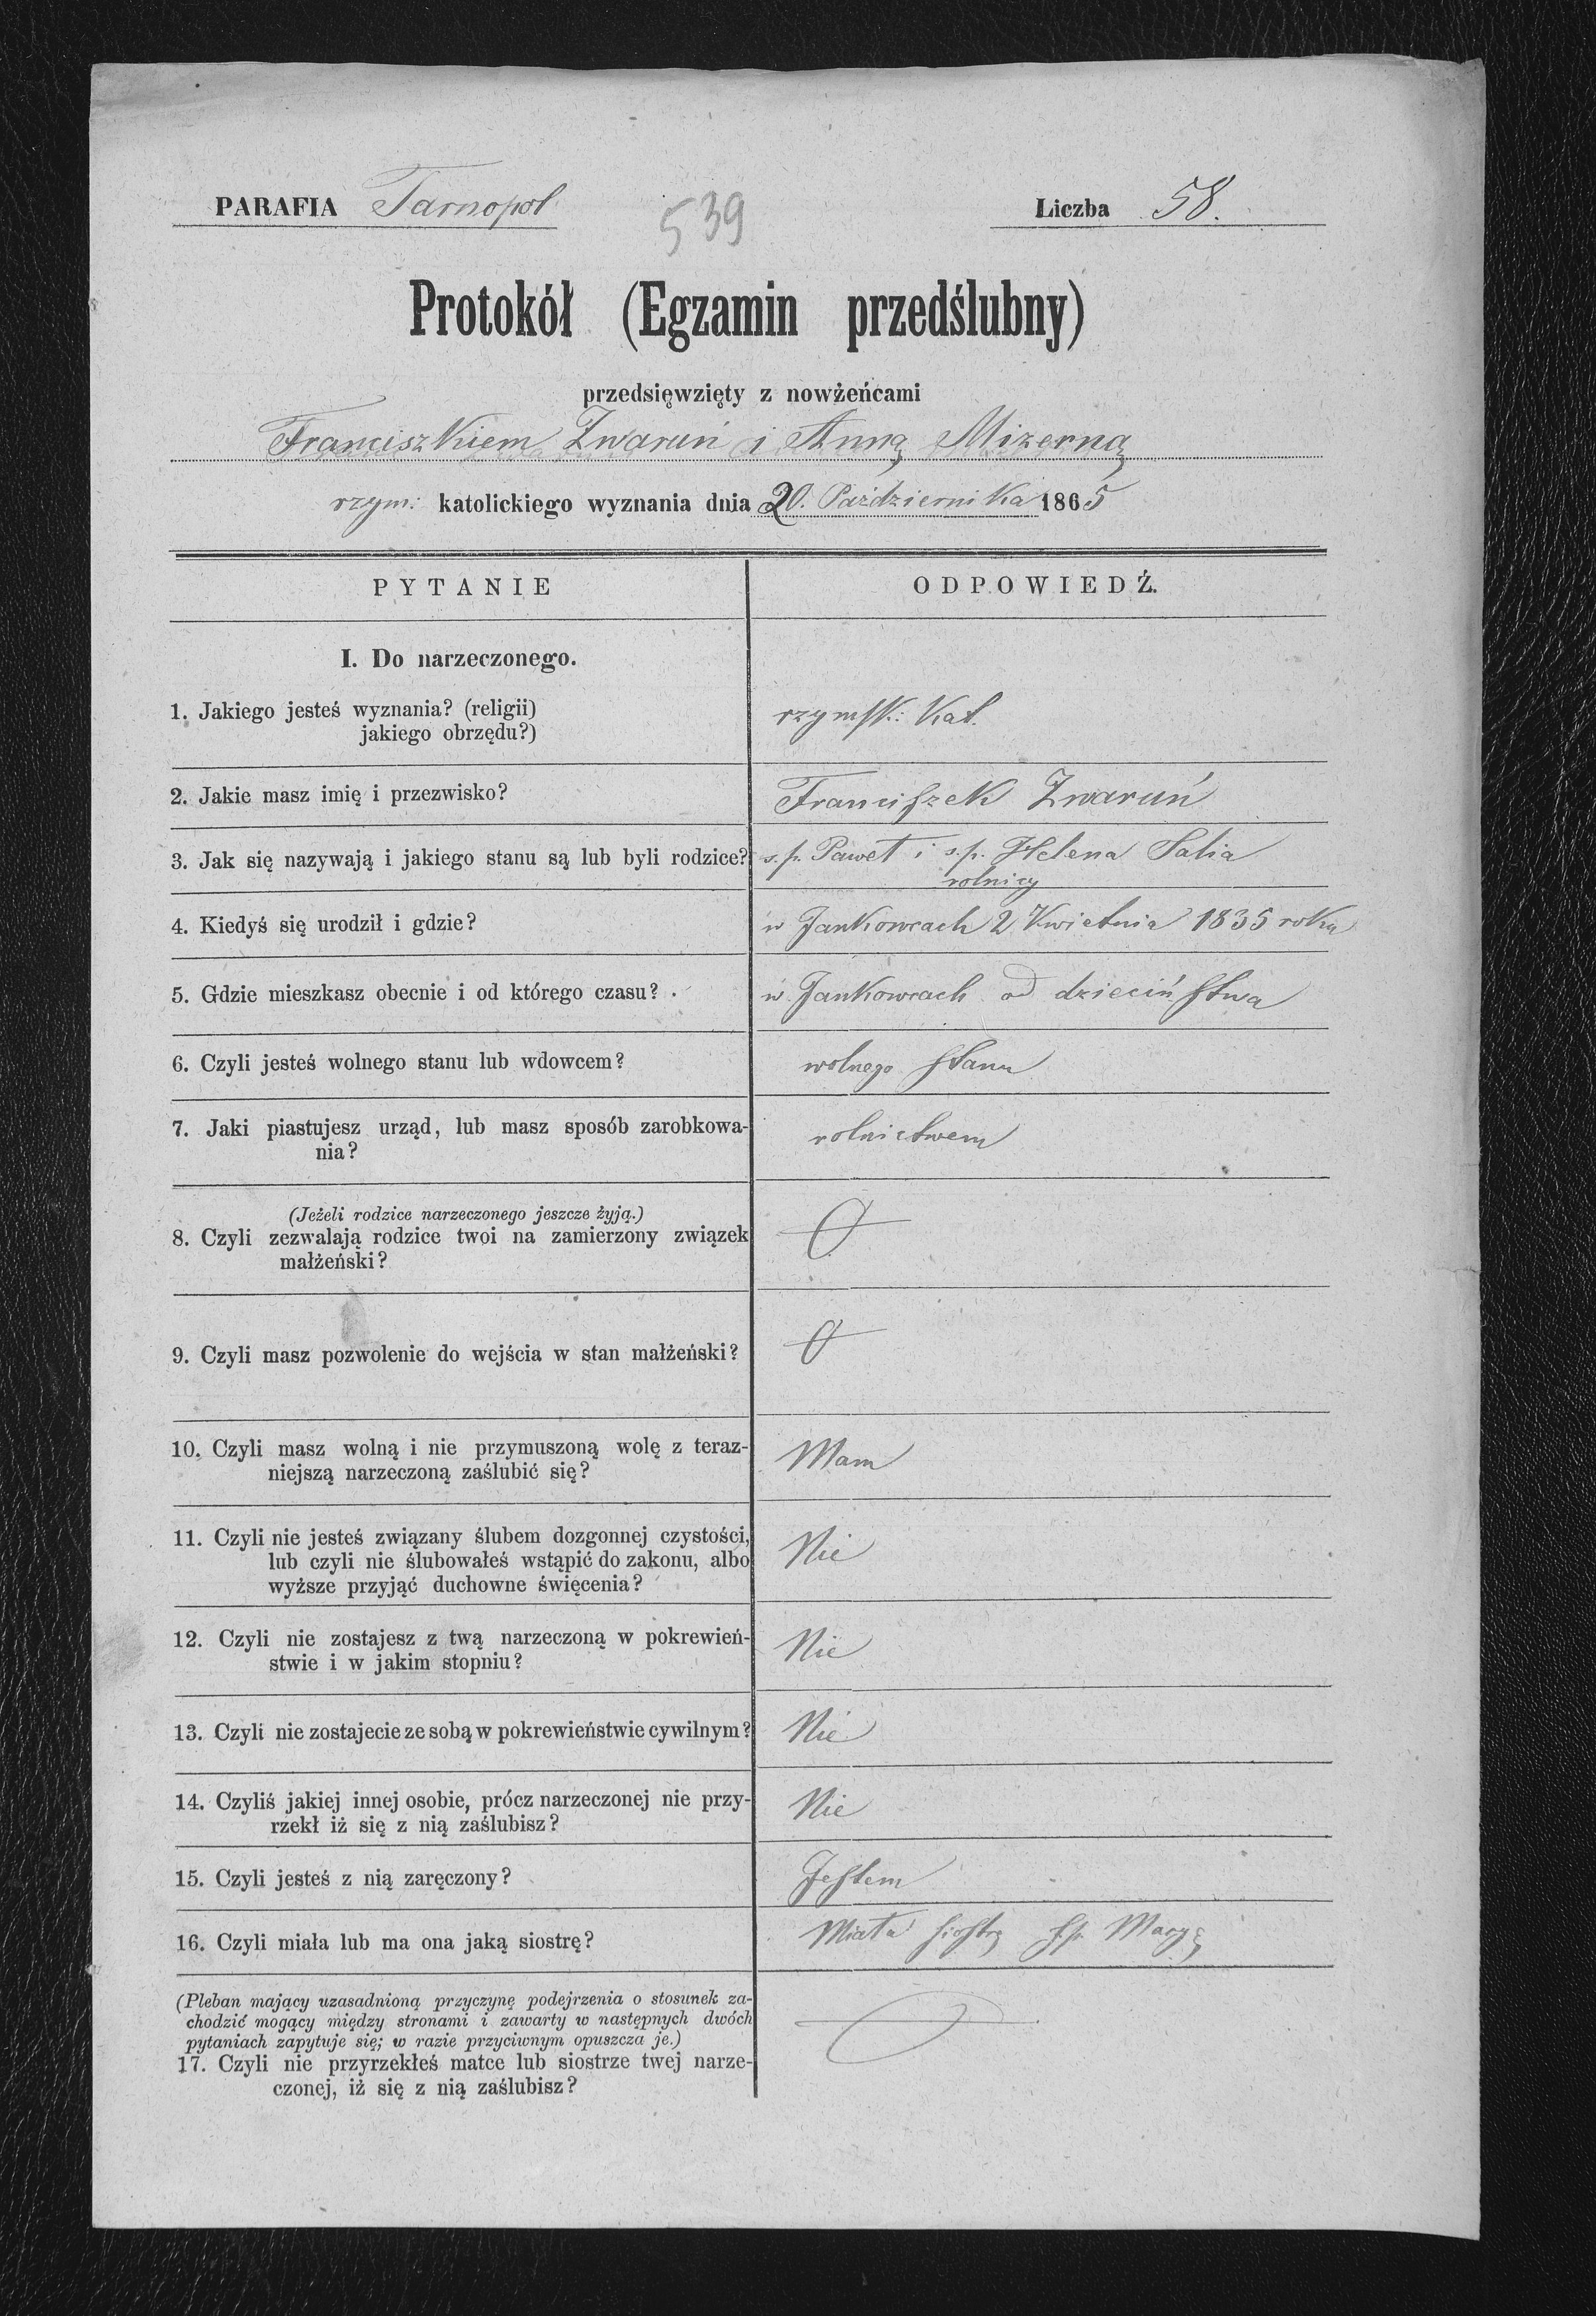 PARAFIA Tarnopol
539
Liczba 58.
Protokół (Egzamin przedślubny)
przedsięwzięty z nowżeńcami
Franciszkiem Zwaruń i Anną Mizerną
rzym: katolickiego wyznania dnia 20. Października 1865
PYTANIE
ODPOWIEDŹ.
I. Do narzeczonego.
1. Jakiego jesteś wyznania? (religii)
jakiego obrzędu?)
rzymsk: kat.
2. Jakie masz imię i przezwisko?
Franciszek Zwaruń
3. Jak się nazywają i jakiego stanu są lub byli rodzice?
s.p. Paweł i s.p. Helena Salia
rolnicy
4. Kiedyś się urodził i gdzie?
w Jankowcach 2 Kwietnia 1835 roku
5. Gdzie mieszkasz obecnie i od którego czasu?
w Jankowcach od dzieciństwa
6. Czyli jesteś wolnego stanu lub wdowcem?
wolnego stanu
7. Jaki piastujesz urząd, lub masz sposób zarobkowa-
nia?
rolnictwem
(Jeżeli rodzice narzeczonego jeszcze żyją.)
8. Czyli zezwalają rodzice twoi na zamierzony związek
małżeński?
9. Czyli masz pozwolenie do wejścia w stan małżeński?
10. Czyli masz wolną i nie przymuszoną wolę z teraz-
niejszą narzeczoną zaślubić się?
Mam
11. Czyli nie jesteś związany ślubem dozgonnej czystości,
lub czyli nie ślubowałeś wstąpić do zakonu, albo
wyższe przyjąć duchowne święcenia?
Nie
12. Czyli nie zostajesz z twą narzeczoną w pokrewień-
stwie i w jakim stopniu?
Nie
13. Czyli nie zostajecie ze sobą w pokrewieństwie cywilnym?
Nie
14. Czyliś jakiej innej osobie, prócz narzeczonej nie przy-
rzekł iż się z nią zaślubisz?
Nie
15. Czyli jesteś z nią zaręczony?
Jestem
16. Czyli miała lub ma ona jaką siostrę?
Miała siostrę s.p. Maryę
(Pleban mający uzasadnioną przyczynę podejrzenia o stosunek za-
chodzić mogący między stronami i zawarty w następnych dwóch
pytaniach zapytuje się; w razie przyciwnym opuszcza je.)
17. Czyli nie przyrzekłeś matce lub siostrze twej narze-
czonej, iż się z nią zaślubisz?